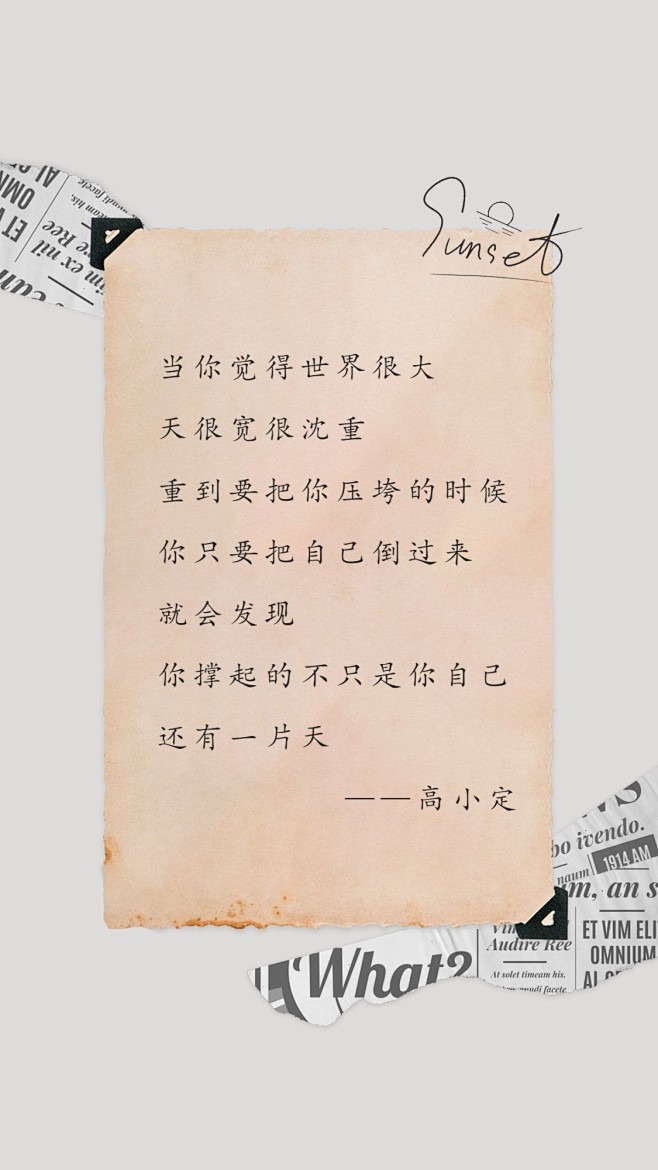 Sunset
当你觉得世界很大
天很宽很沈重
重到要把你压垮的时候
你只要把自己倒过来
就会发现
你撑起的不只是你自己
还有一片天
——高小定
bo ivendo.
1914 AM
naum
um, an s
Audire Ree
At solet timeam his,
mundi facete
ET VIM ELI
OMNIUM
What?